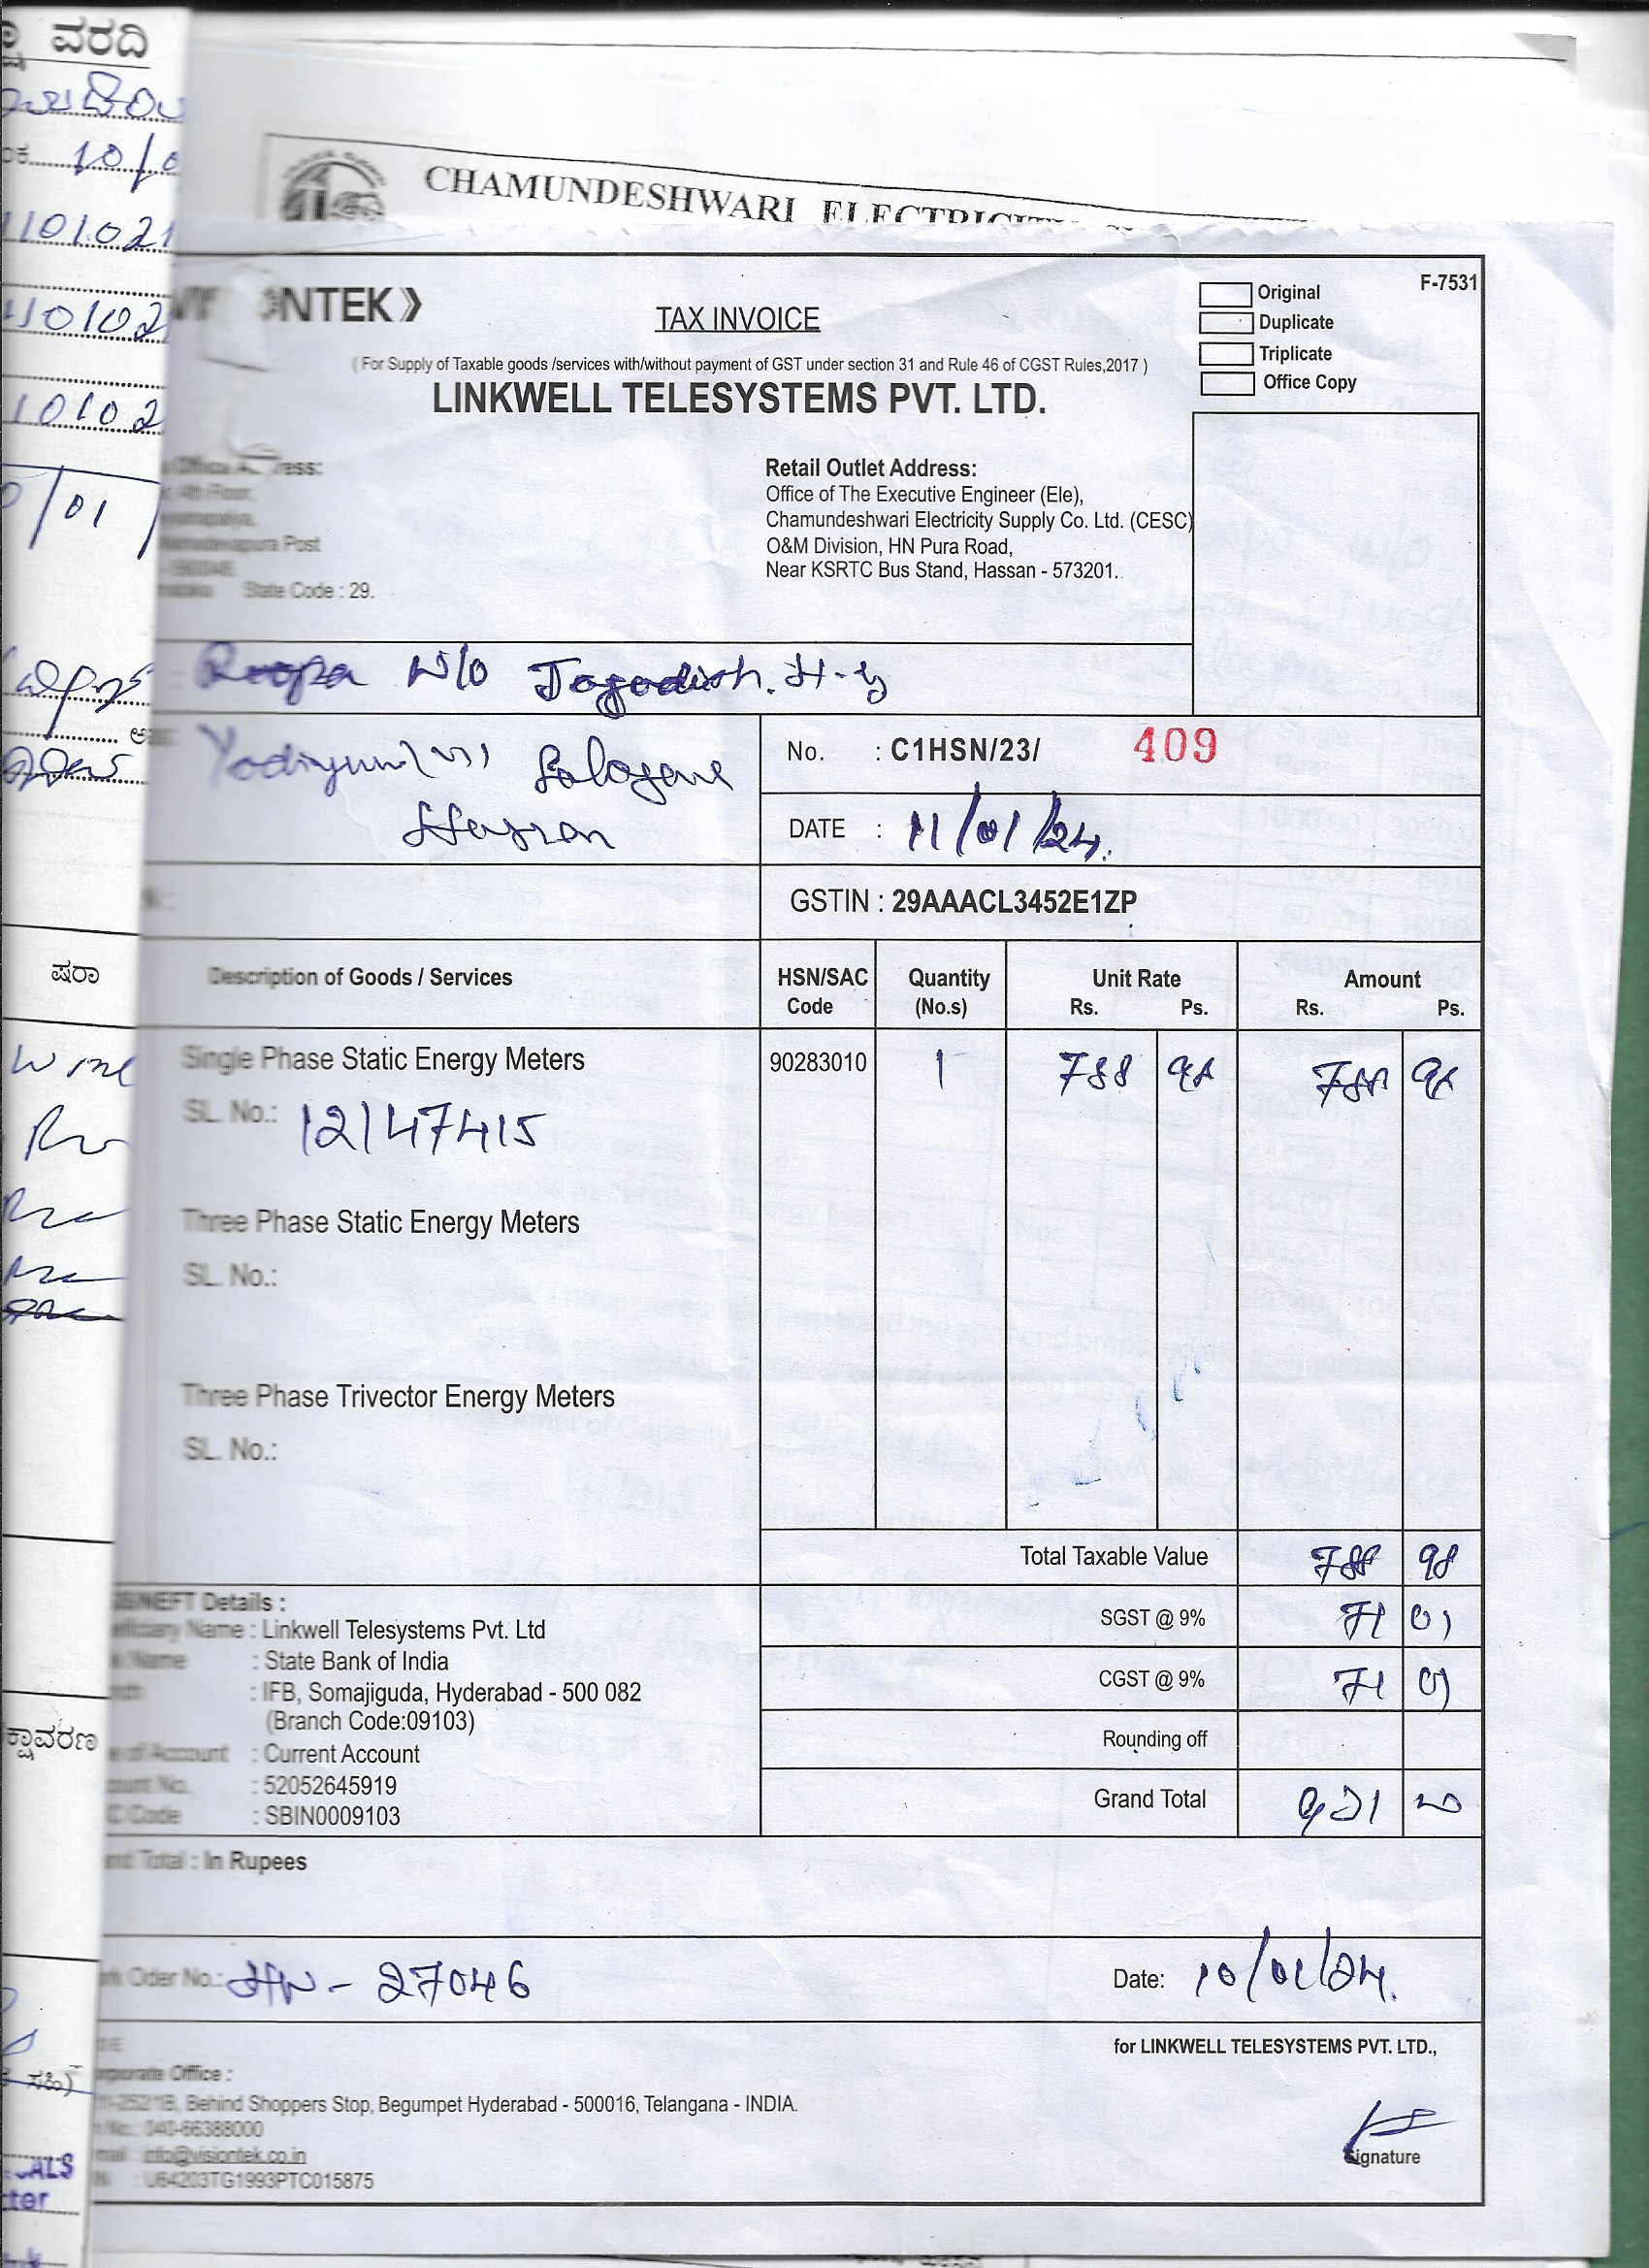 ವರದಿ
10/0
1101021
110102
10102
/01
ಷರಾ
ಕ್ಷಾವರಣ
ಸಹಿ)
CALS
CHAMUNDESHWARI ELECTRICITY
F-7531
ONTEK
TAX INVOICE
Original
Duplicate
Triplicate
Office Copy
( For Supply of Taxable goods /services with/without payment of GST under section 31 and Rule 46 of CGST Rules,2017 )
LINKWELL TELESYSTEMS PVT. LTD.
Post
State Code : 29.
Retail Outlet Address:
Office of The Executive Engineer (Ele),
Chamundeshwari Electricity Supply Co. Ltd. (CESC)
O&M Division, HN Pura Road,
Near KSRTC Bus Stand, Hassan - 573201.
Roopa W/o Jagadish. H-Y
Salagame
Hassan
No. : C1HSN/23/ 409
DATE : 11/01/24.
GSTIN : 29AAACL3452E1ZP
Description of Goods / Services HSN/SAC Code Quantity (No.s) Unit Rate Rs. Ps. Amount Rs. Ps.
Single Phase Static Energy Meters 90283010 1 788 98 788 98
SL. No.: 12147415
Three Phase Static Energy Meters
SL. No.:
Three Phase Trivector Energy Meters
SL. No.:
Total Taxable Value 788 98
SGST @ 9% 71 01
CGST @ 9% 71 01
Rounding off
Grand Total 931
NEFT Details :
Name : Linkwell Telesystems Pvt. Ltd
Name : State Bank of India
: IFB, Somajiguda, Hyderabad - 500 082
(Branch Code:09103)
of Account : Current Account
No. : 52052645919
Code : SBIN0009103
Total : In Rupees
Oder No.: HN - 27046
Date: 10/01/24.
for LINKWELL TELESYSTEMS PVT. LTD.,
Office :
Behind Shoppers Stop, Begumpet Hyderabad - 500016, Telangana - INDIA.
No.: 040-66388000
: info@visiontek.co.in
: U64203TG1993PTC015875
Signature